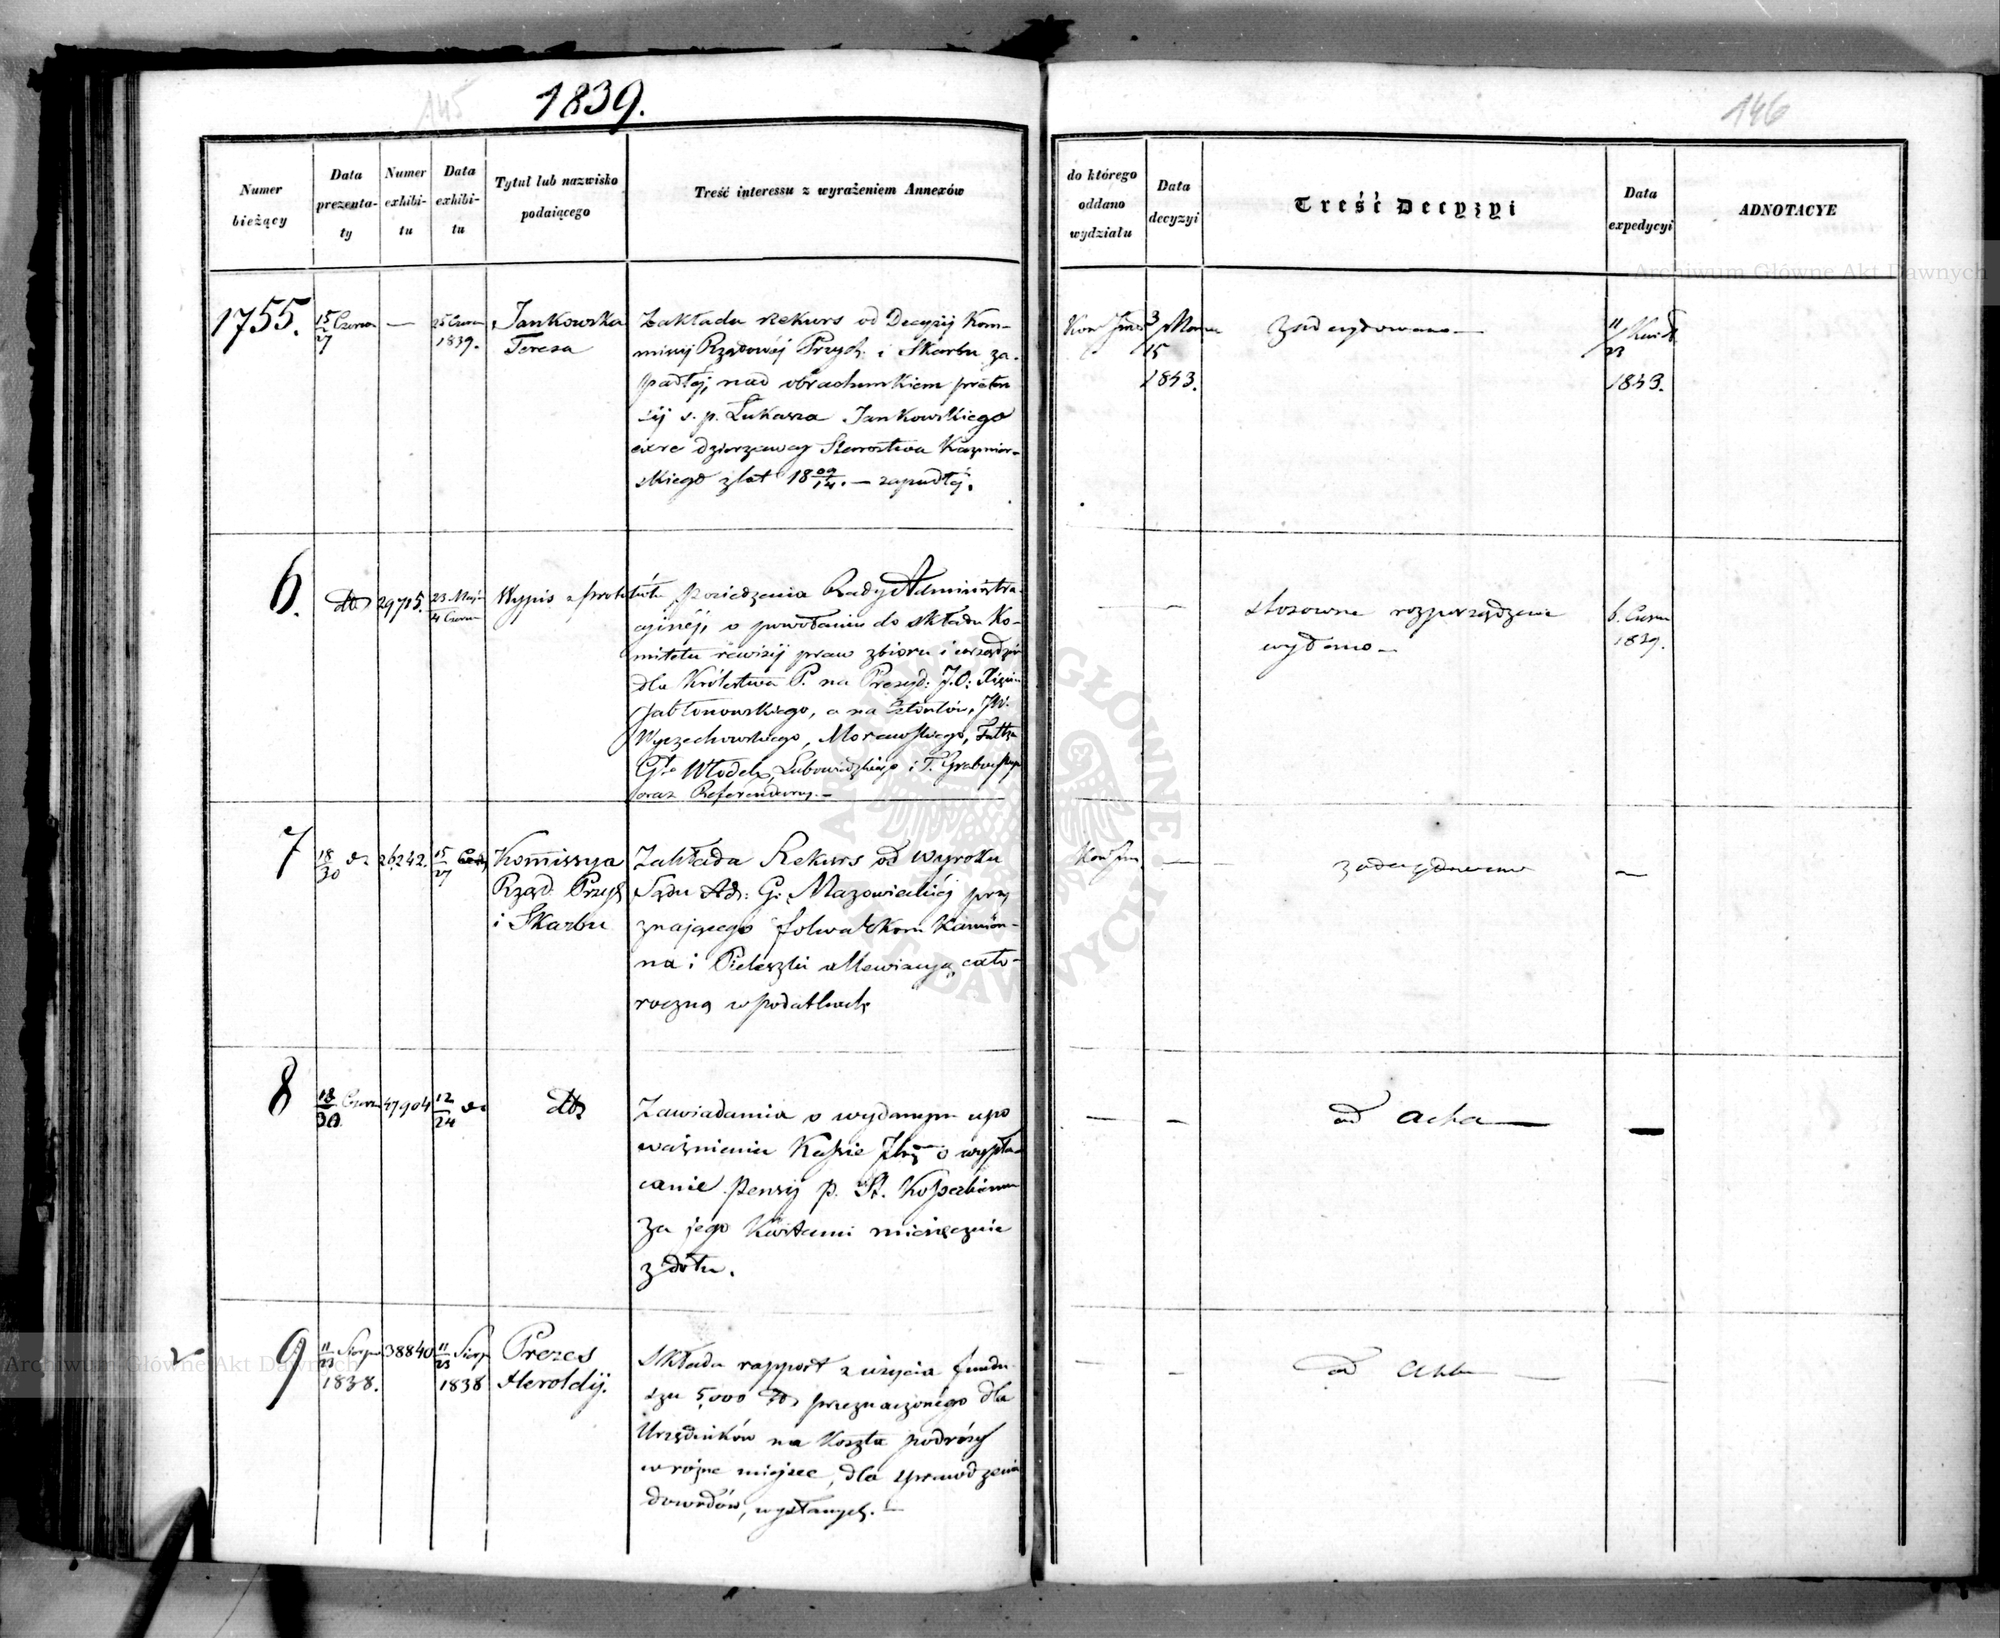 145
1839.
146
Numer bieżący
Data prezentaty
Numer exhibitu
Data exhibitu
Tytuł lub nazwisko podaiącego
Treść interessu z wyrażeniem Annexów
do którego oddano wydziału
Data decyzyi
Treść Decyzyi
Data expedycyi
ADNOTACYE
1755.
15/27 Czerwca
—
25 Czerw
1839.
Jankowska
Teresa
Zakłada Rekurs od Decyzij Kom-
missij Rządowéj Przych: i Skarbu za-
padłéj, nad obrachunkiem preten
sij s. p. Łukasza Jankowskiego
exre dzierzawcy Starostwa Kazmier-
skiego z lat 18 09/14. — zapadłéj.
3/15 Marca
1843.
Zadecydowano —
11/23 Kwiet
1843.
6.
dto
29715.
23 Maja
4 Czerw
Wypis z protokułu posiedzenia Rady Administra-
cyinéj, o powołaniu do składu Ko-
mitetu rewizij praw zbioru i urządzeń
dla Królestwa P. na Prezyd: J.O: Xięcia
Jabłonowskiego, a na Członków, JW.
Wyczechowskiego, Morawskiego,
Włodek, Lubowidzkiego i T. Grabowskiego
oraz Referendarzy. —
— —
stosowne rozporządzenie
wydano —
6. Czerw
1839.
7
18/30 do
26242.
15/27
Kommissya
Rząd Przych
i Skarbu
Zakłada Rekurs od wyroku
Sądu Ad: G: Mazowieckiéj przy
znającego folwarkom Kamion-
na i Pieleszki allewiacyą cało-
roczną w podatkach
— —
zadecydowano
—
8
18/30 Czerw
47904
12/24 do
dto
Zawiadamia o wydanym upo
ważnieniu Kassie o wypła
canie pensij p. St.
za jego Kwitami miesięcznie
z dołu.
— —
ad acta —
—
9
11/23 Sierp
1838.
38840
11/23 Sierp
1838
Prezes
Heroldij.
Składa rapport z użycia fundu
szu 5,000 przeznaczonego dla
Urzędników na koszta podróży
w rożne miejsce, dla sprawdzenia
dowodów, wysłanych. —
— —
ad acta —
—
Archiwum Główne Akt Dawnych
Archiwum Główne Akt Dawnych
ARCHIWUM GŁÓWNE AKT DAWNYCH